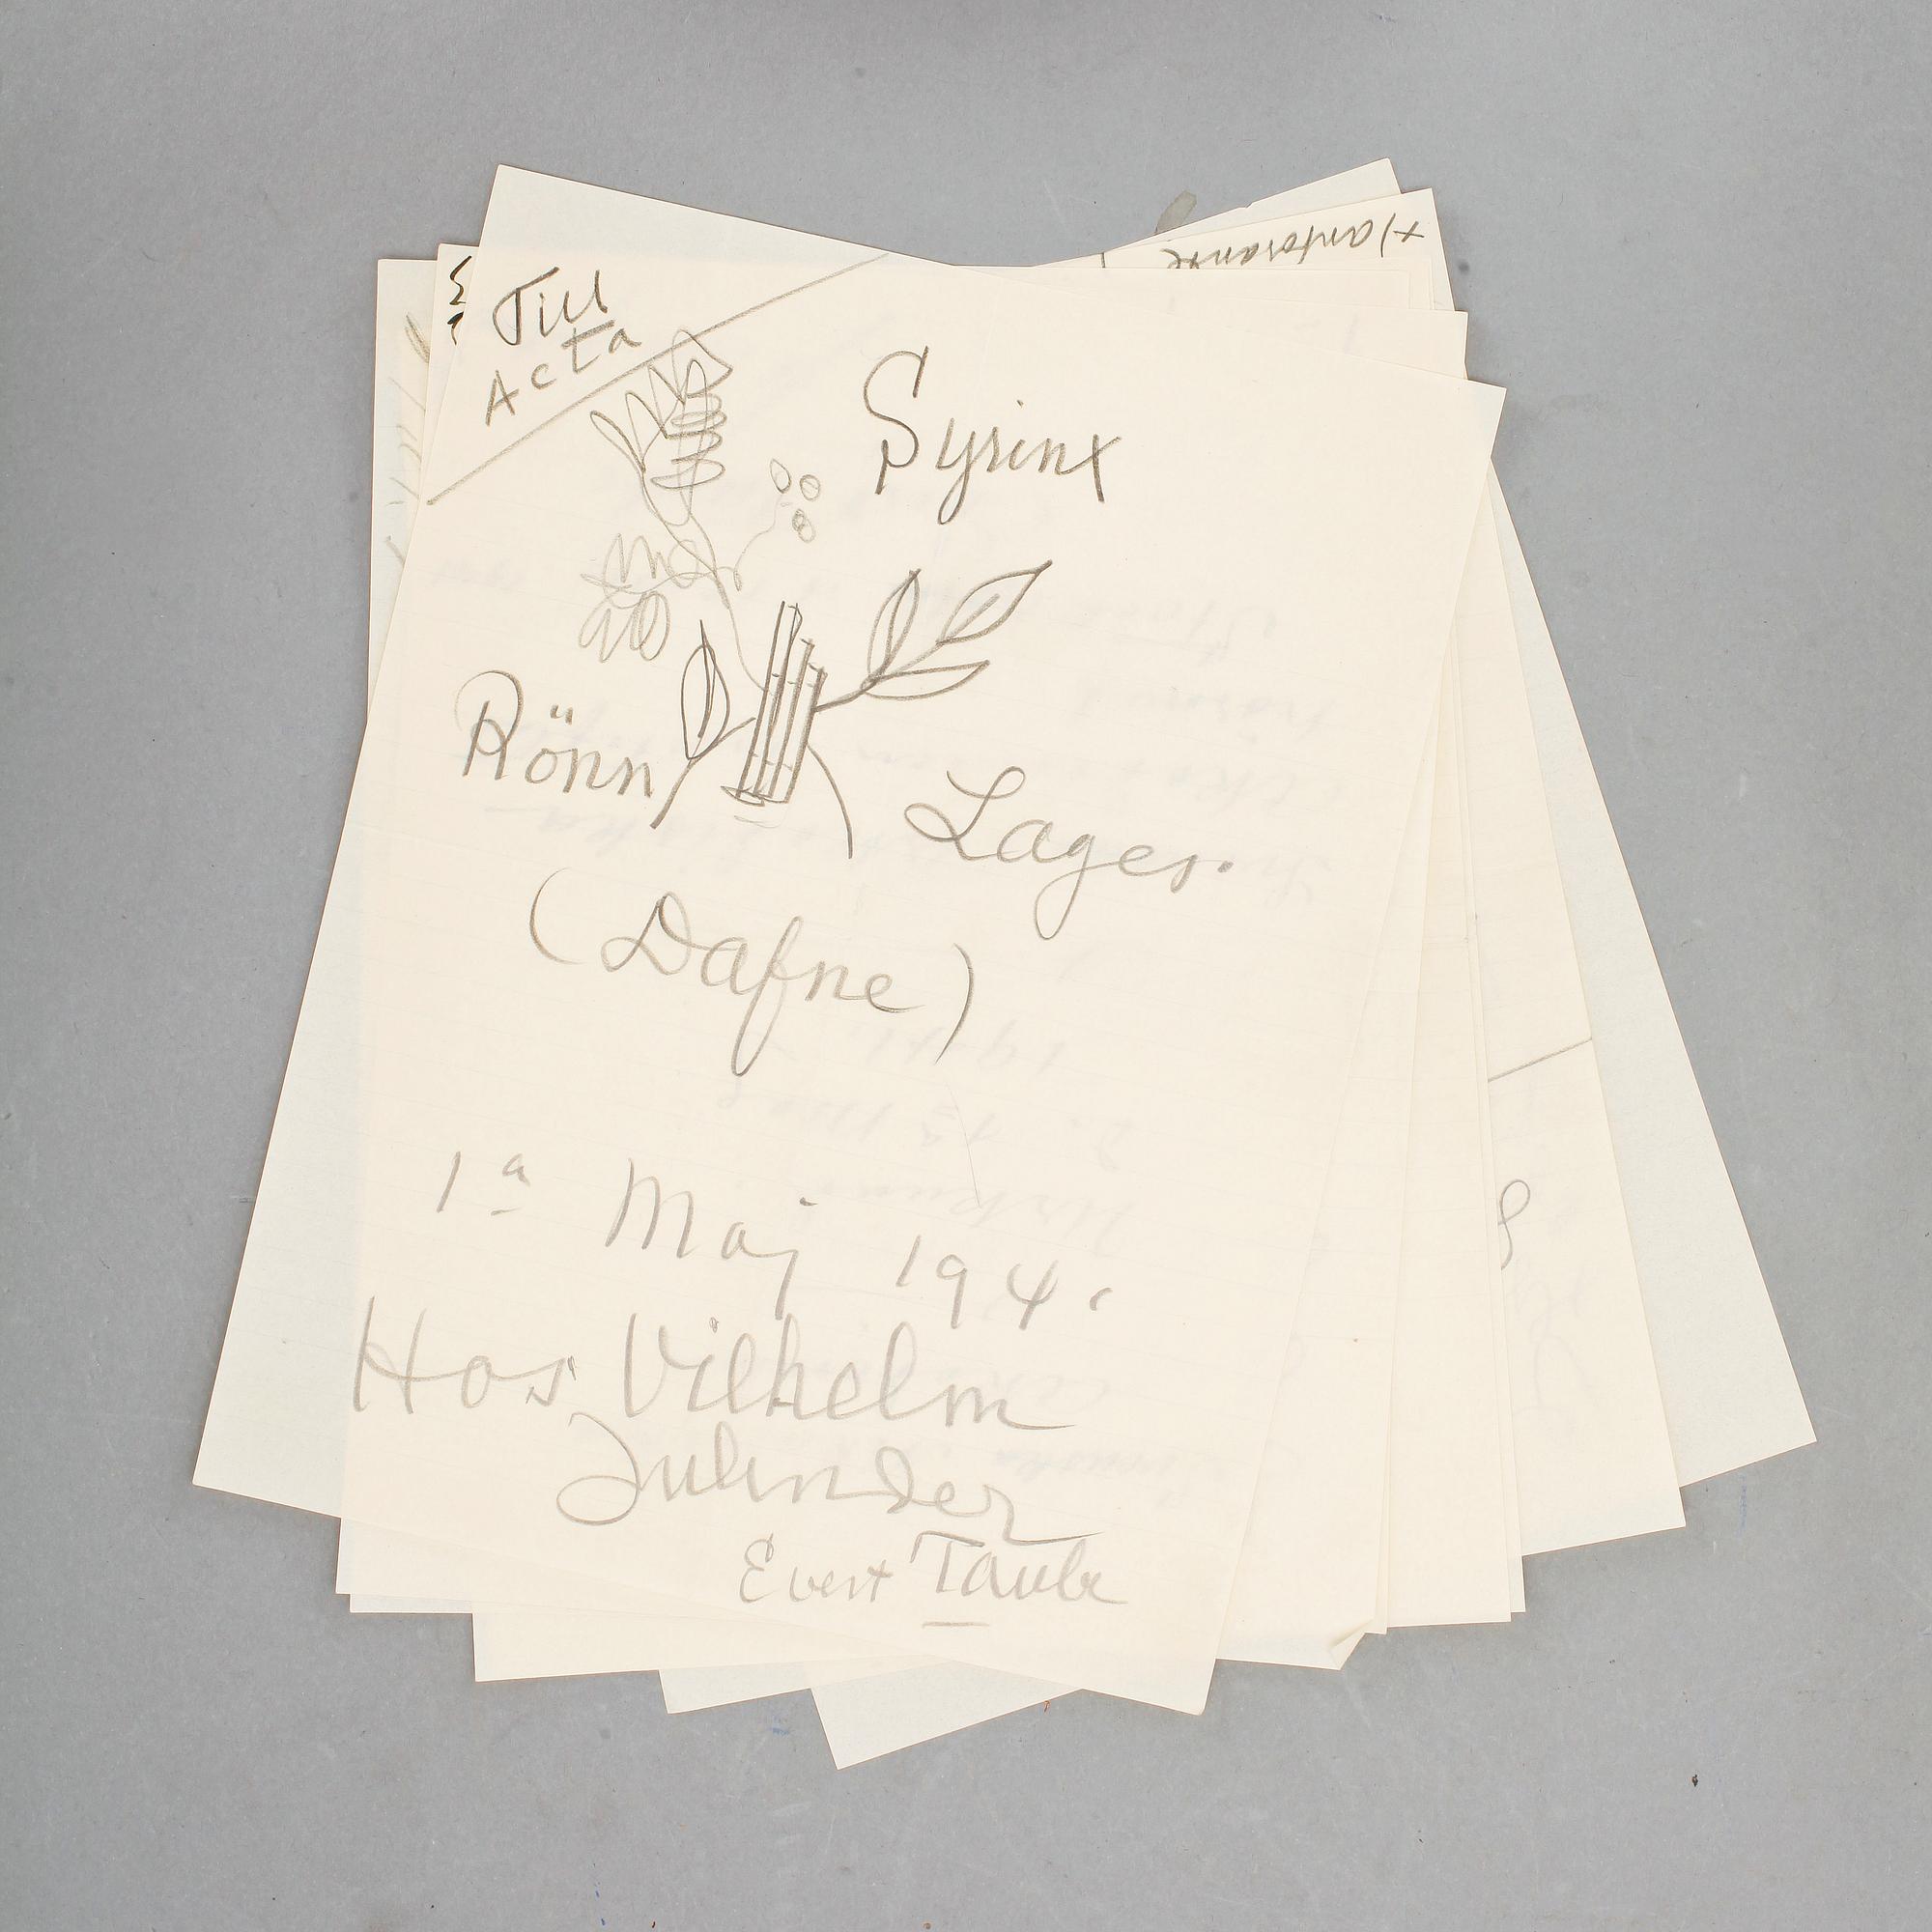 Till
Acta
Syrinx
Rönn
Lager.
(Dafne)
1a Maj 194
Hos Vilhelm
Julinder
Evert Taube
x) antorante